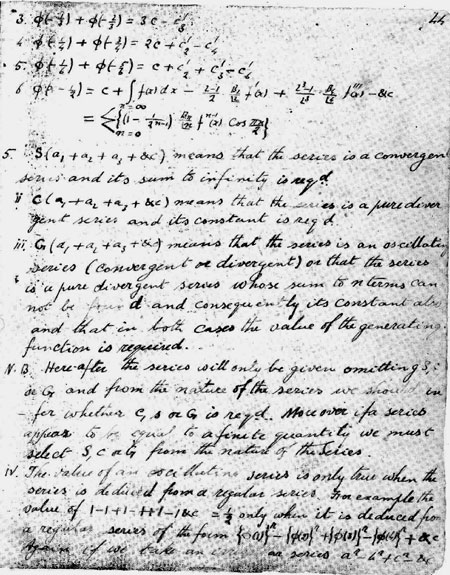 44
3. φ(-1/3) + φ(-2/3) = 3c - c'₃
4. φ(-1/4) + φ(-3/4) = 2c + c'₂ - c'₄
5. φ(-1/6) + φ(-5/6) = c + c'₂ + c'₃ - c'₆
6 φ(-1/2) = c + ∫ f(x) dx -
n=∞
= Σ {(1 - 1/2ⁿ⁻¹) Bₙ/n fⁿ⁻¹(x) Cos πn/2}
n=0
5. S(a₁ + a₂ + a₃ + &c) means that the series is a convergen
series and its sum to infinity is reqd.
ii C(a₁ + a₂ + a₃ + &c) means that the series is a pure diver
gent series and its constant is reqd
iii. G(a₁ + a₂ + a₃ + &c) means that the series is an oscillating
series (convergent or divergent) or that the series
is a pure divergent series whose sum to n terms can
not be found and consequently its constant also
and that in both cases the value of the generating
function is required.
N.B. Hereafter the series will only be given omitting S, C
or G and from the nature of the series we should in
-fer whether C, S or G is reqd. Moreover if a series
appear to be equal to a finite quantity we must
select S, C or G from the nature of the series
iv. The value of an oscillating series is only true when the
series is deduced from a regular series. For example the
value of 1-1+1-1+1-1&c = 1/2 only when it is deduced from
a regular series of the form
Again if we take an series a² - b² + c² - &c